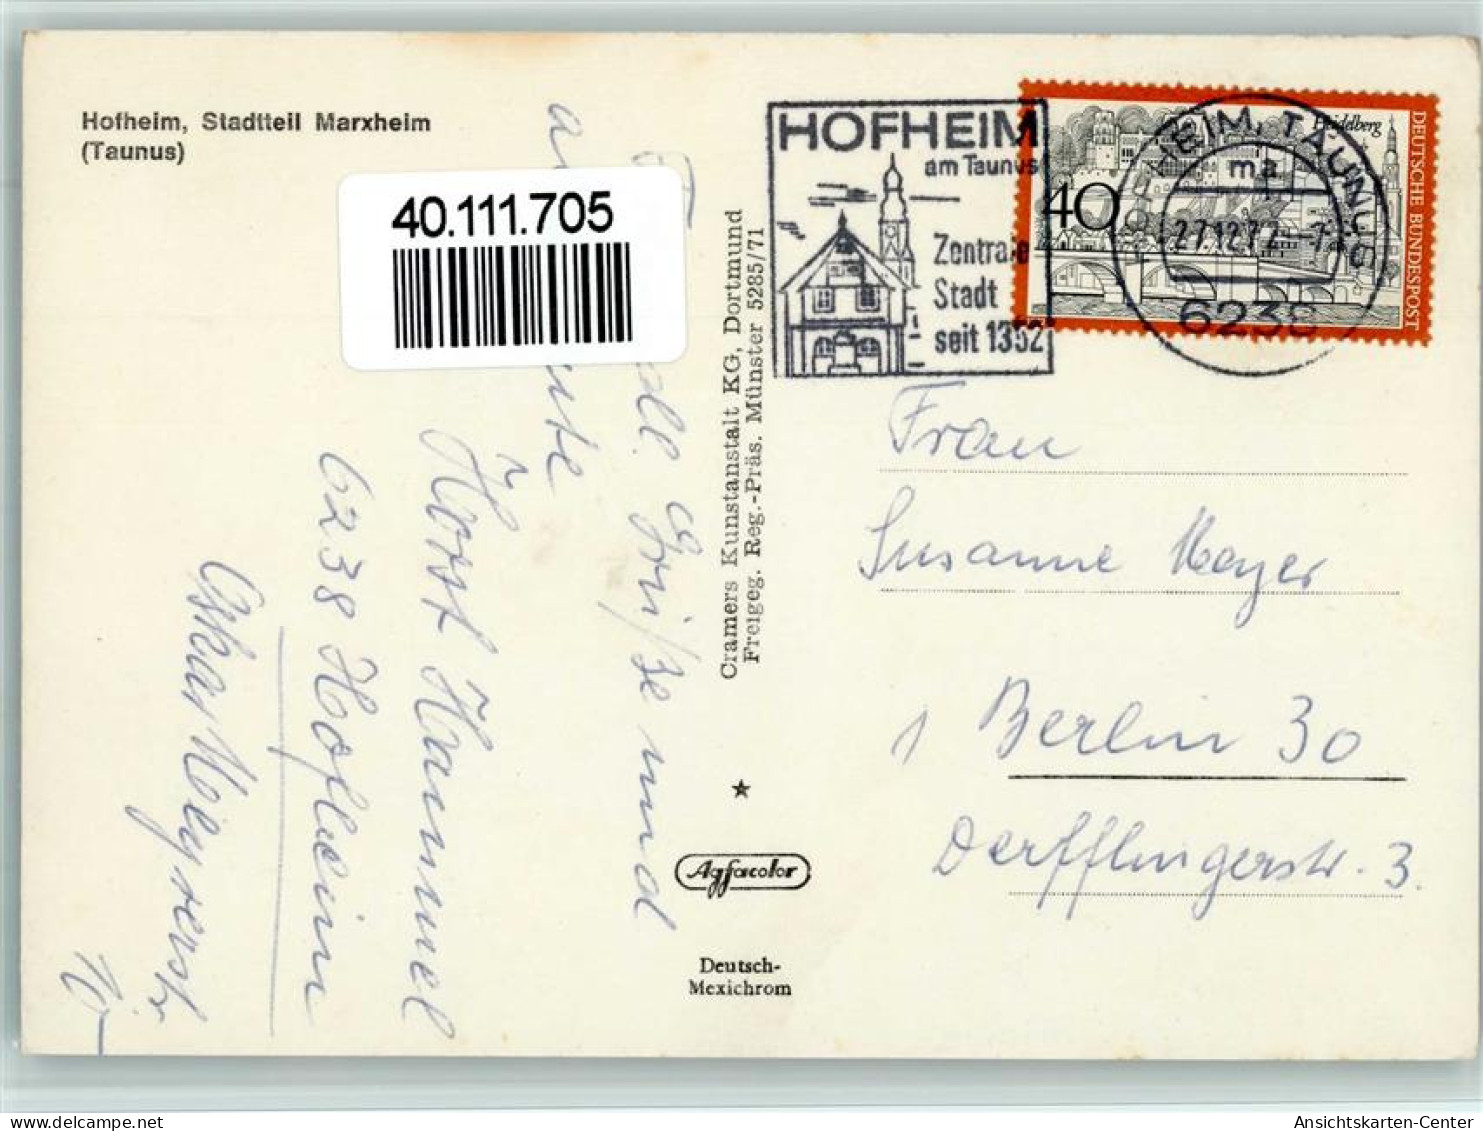 Hofheim, Stadtteil Marxheim
(Taunus)
40.111.705
HOFHEIM
am Taunus
Zentrale
Stadt
seit 1352
Heidelberg
40
DEUTSCHE BUNDESPOST
HEIM, TAUNUS
ma
27.12.72
6238
Cramers Kunstanstalt KG, Dortmund
Freigeg. Reg.-Präs. Münster 5285/71
Grüße und
Horst Hammel
6238 Hofheim
Frau
Susanne Mayer
1 Berlin 30
Derfflingerstr. 3.
Agfacolor
Deutsch-
Mexichrom
Ansichtskarten-Center